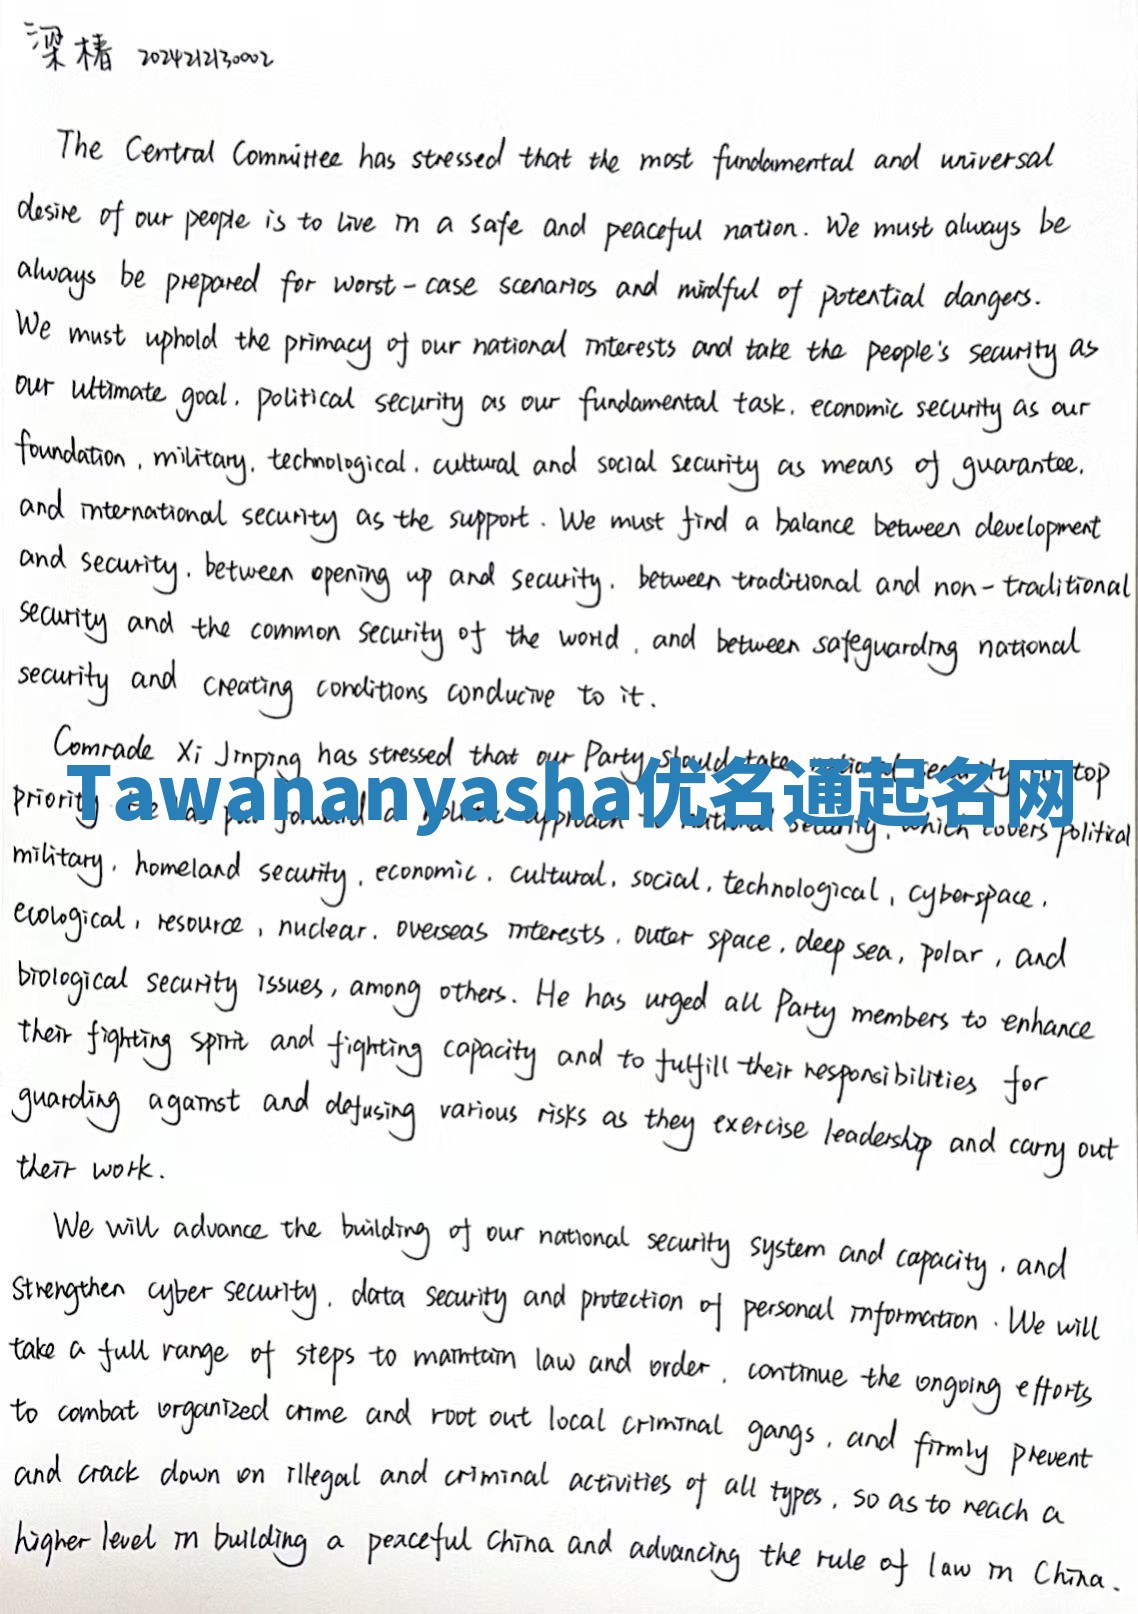 梁椿 2024212130002
The Central Committee has stressed that the most fundamental and universal
desire of our people is to live in a safe and peaceful nation. We must always be
always be prepared for worst-case scenarios and mindful of potential dangers.
We must uphold the primacy of our national interests and take the people's security as
our ultimate goal, political security as our fundamental task, economic security as our
foundation, military, technological, cultural and social security as means of guarantee,
and international security as the support. We must find a balance between development
and security, between opening up and security, between traditional and non-traditional
security and the common security of the world, and between safeguarding national
security and creating conditions conducive to it.
Comrade Xi Jinping has stressed that our Party should take national security top
Tawananyasha优名通起名网
priority put forward a approach national security, which covers political
military, homeland security, economic, cultural, social, technological, cyberspace,
ecological, resource, nuclear, overseas interests, outer space, deep sea, polar, and
biological security issues, among others. He has urged all Party members to enhance
their fighting spirit and fighting capacity and to fulfill their responsibilities for
guarding against and defusing various risks as they exercise leadership and carry out
their work.
We will advance the building of our national security system and capacity, and
strengthen cyber security, data security and protection of personal information. We will
take a full range of steps to maintain law and order, continue the ongoing efforts
to combat organized crime and root out local criminal gangs, and firmly prevent
and crack down on illegal and criminal activities of all types, so as to reach a
higher level in building a peaceful China and advancing the rule of law in China.